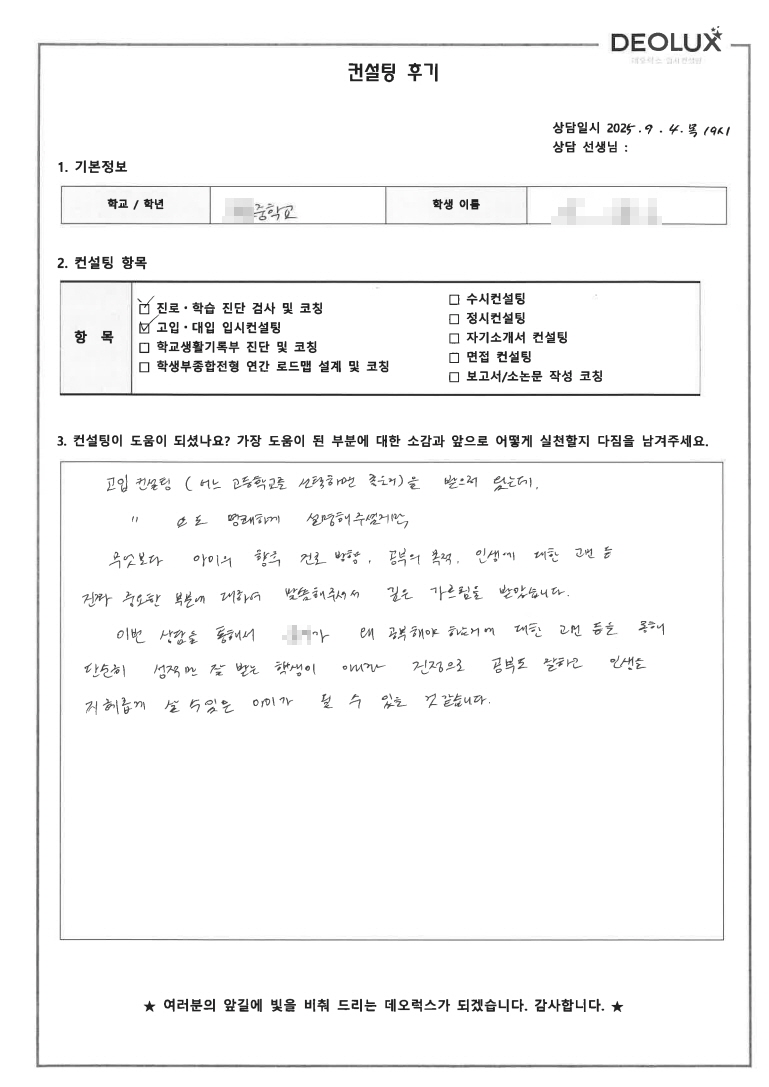 DEOLUX
데오럭스 입시컨설팅
컨설팅 후기
상담일시 2025. 9. 4. 목 19시
상담 선생님 :
1. 기본정보
학교 / 학년 중학교 학생 이름
2. 컨설팅 항목
항 목
진로·학습 진단 검사 및 코칭
고입·대입 입시컨설팅
학교생활기록부 진단 및 코칭
학생부종합전형 연간 로드맵 설계 및 코칭
수시컨설팅
정시컨설팅
자기소개서 컨설팅
면접 컨설팅
보고서/소논문 작성 코칭
3. 컨설팅이 도움이 되셨나요? 가장 도움이 된 부분에 대한 소감과 앞으로 어떻게 실천할지 다짐을 남겨주세요.
고입 컨설팅 (어느 고등학교를 선택하면 좋은지)을 받으러 왔는데,
〃 으로 명쾌하게 설명해주셨지만
무엇보다 아이의 향후 진로 방향, 공부의 목적, 인생에 대한 고민 등
진짜 중요한 부분에 대하여 말씀해주셔서 깊은 가르침을 받았습니다.
이번 상담을 통해서 가 왜 공부해야 하는지에 대한 고민 등을 통해
단순히 성적만 잘 받는 학생이 아니라 진정으로 공부도 잘하고 인생을
지혜롭게 살 수 있은 아이가 될 수 있을 것 같습니다.
★ 여러분의 앞길에 빛을 비춰 드리는 데오럭스가 되겠습니다. 감사합니다. ★